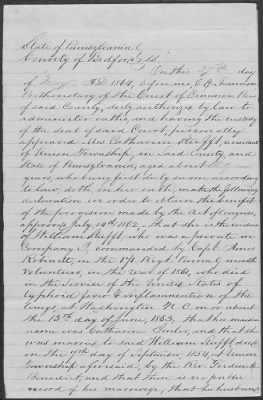 State of Pennsylvania
County of Bedford, ss.
On the 27th day
of May AD 1864, before me O. E. Shannon
Prothonotary of the Court of Common Pleas
of said County, duly authorized by law to
administer oaths, and having the custody
of the seal of said Court, personally
appeared Mrs Catharine , a resident
of Union Township, in said County and
State of Pennsylvania, aged about
years, who being first duly sworn according
to law, doth on her oath, make the following
declaration in order to obtain the benefit
of the provision made by the Act of Congress,
approved July 14th 1862, that she is the widow
of William , who was a private in
Company , commanded by Capt.
in the 171 Regt Penna 9 month
Volunteers, in the War of 1861, who died
in the Service of the United States of
Typhoid fever & inflammation of the
lungs, at Washington N. C. on or about
the 13th day of June, 1863, that her maiden
name was Catharine , and that she
was married to said William , decd
on the day of September 1854, at Union
Township aforesaid, by the Rev. Frederick
Benedict, and that there is no public
record of his marriage, that her husband